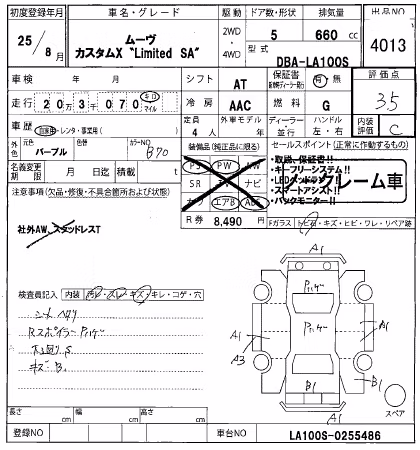 初度登録年月 車名・グレード 駆動 ドア数・形状 排気量 出品NO
25/8月 ムーヴ カスタムX "Limited SA" 2WD・4WD 5 660cc 4013
型式 DBA-LA100S
車検 年 月 シフト AT 保証書 有・無 評価点
走行 20万3千070 キロ マイル 冷房 AAC 燃料 G 3.5
車歴 自家用・レンタ・事業用( ) 定員 4人 外車モデル 年 ディーラー 並行 ハンドル 左・右 内装評価 C
外色 元色 パープル 色替 カラーNO B70
装備品(純正品に限る) セールスポイント(正常に作動するもの)
PS PW
SR TV ナビ
カワ エアB ABS
・取説、保証書!!
・キーフリーシステム!!
・LEDヘッドランプ!!
・スマートアシスト!!
・バックモニター!!
ノークレーム車
名義変更期限 月 日迄 積載 t
注意事項(欠品・修復・不具合箇所および状態)
R券 8,490円
Fガラス トビ石・キズ・ヒビ・ワレ・リペア跡
社外AW、スタッドレスT
検査員記入 内装 汚レ・スレ・キズ・キレ・コゲ・穴
シートヘタリ
Rスポイラーハガレ
下廻りS
キズB.
A1
A1
A3
A1
B1
B1
A1
スペア
長さ cm 幅 cm 高さ cm
登録NO 車台NO LA100S-0255486